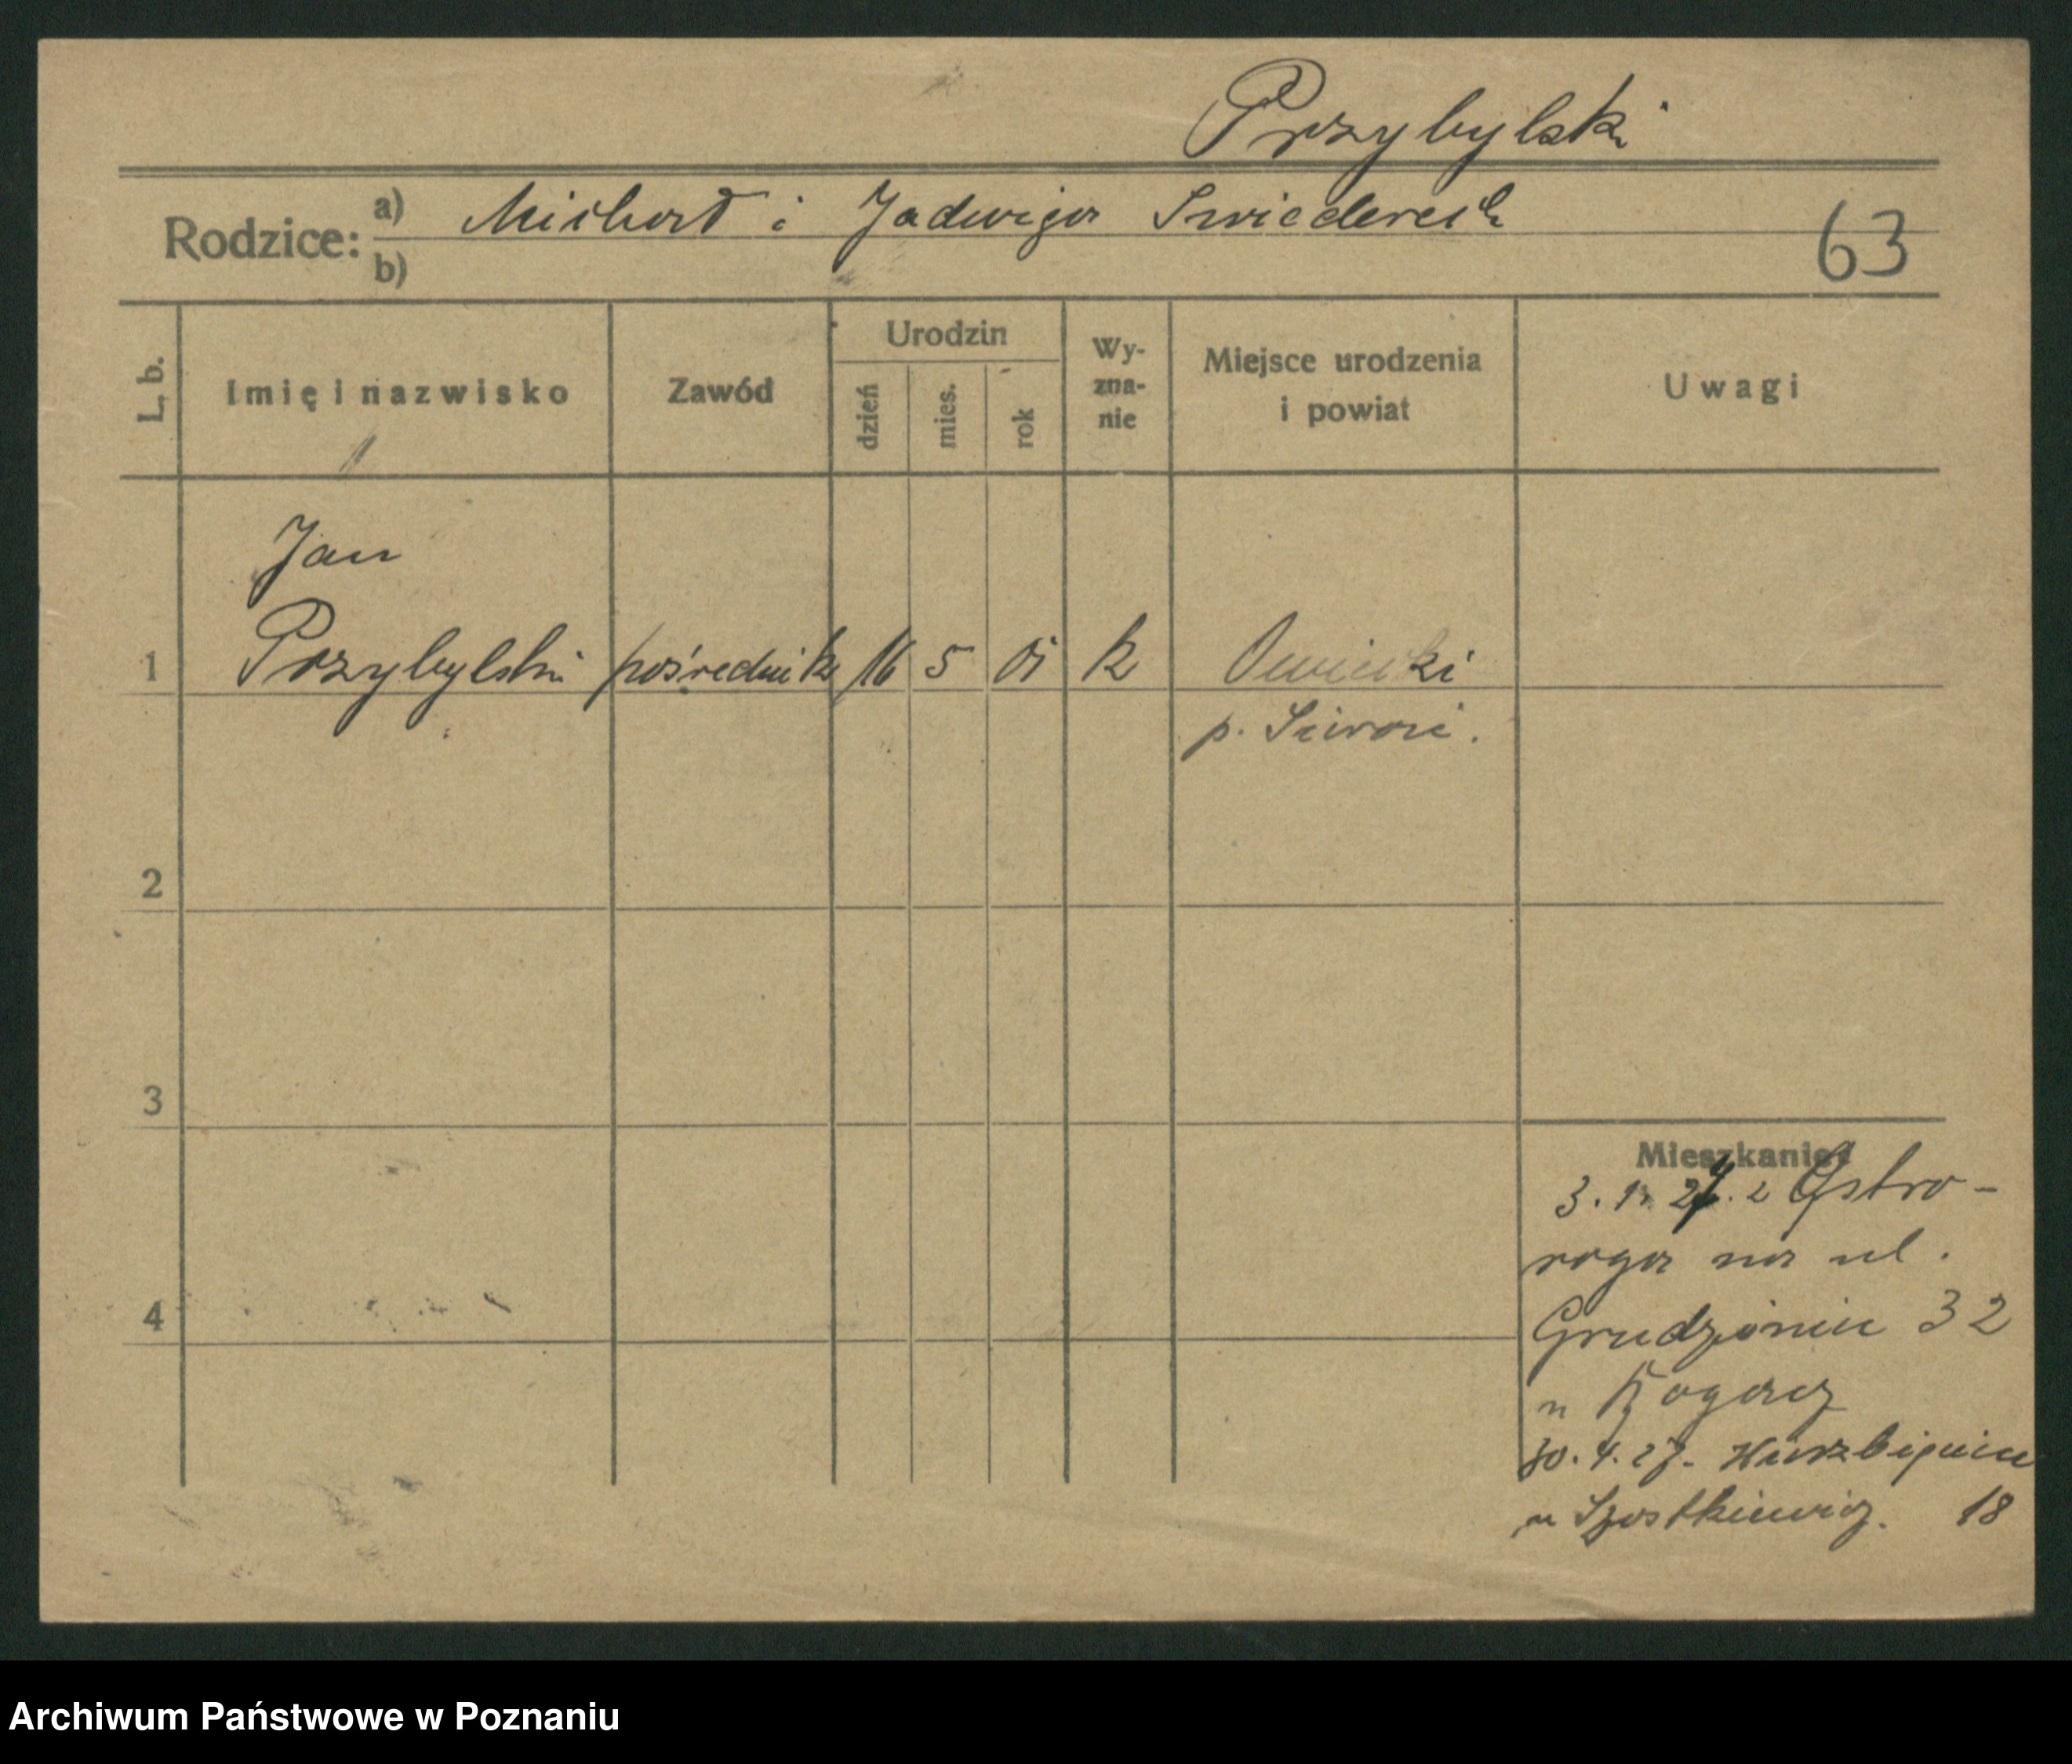 Przybylski
Rodzice: a) Michał i Jadwiga
b)
63
L. b.
Imię i nazwisko
Zawód
Urodzin
dzień
mies.
rok
Wy-
zna-
nie
Miejsce urodzenia
i powiat
Uwagi
Jan
1 Przybylski pośrednik 16 5 01 k
p.
2
3
4
Mieszkanie:
3. 1. 27. z Ostro-
roga na ul.
Grudzieniec 32
u
30. 4. 27. Wierzbięcice
u Szostkiewicz. 18
Archiwum Państwowe w Poznaniu